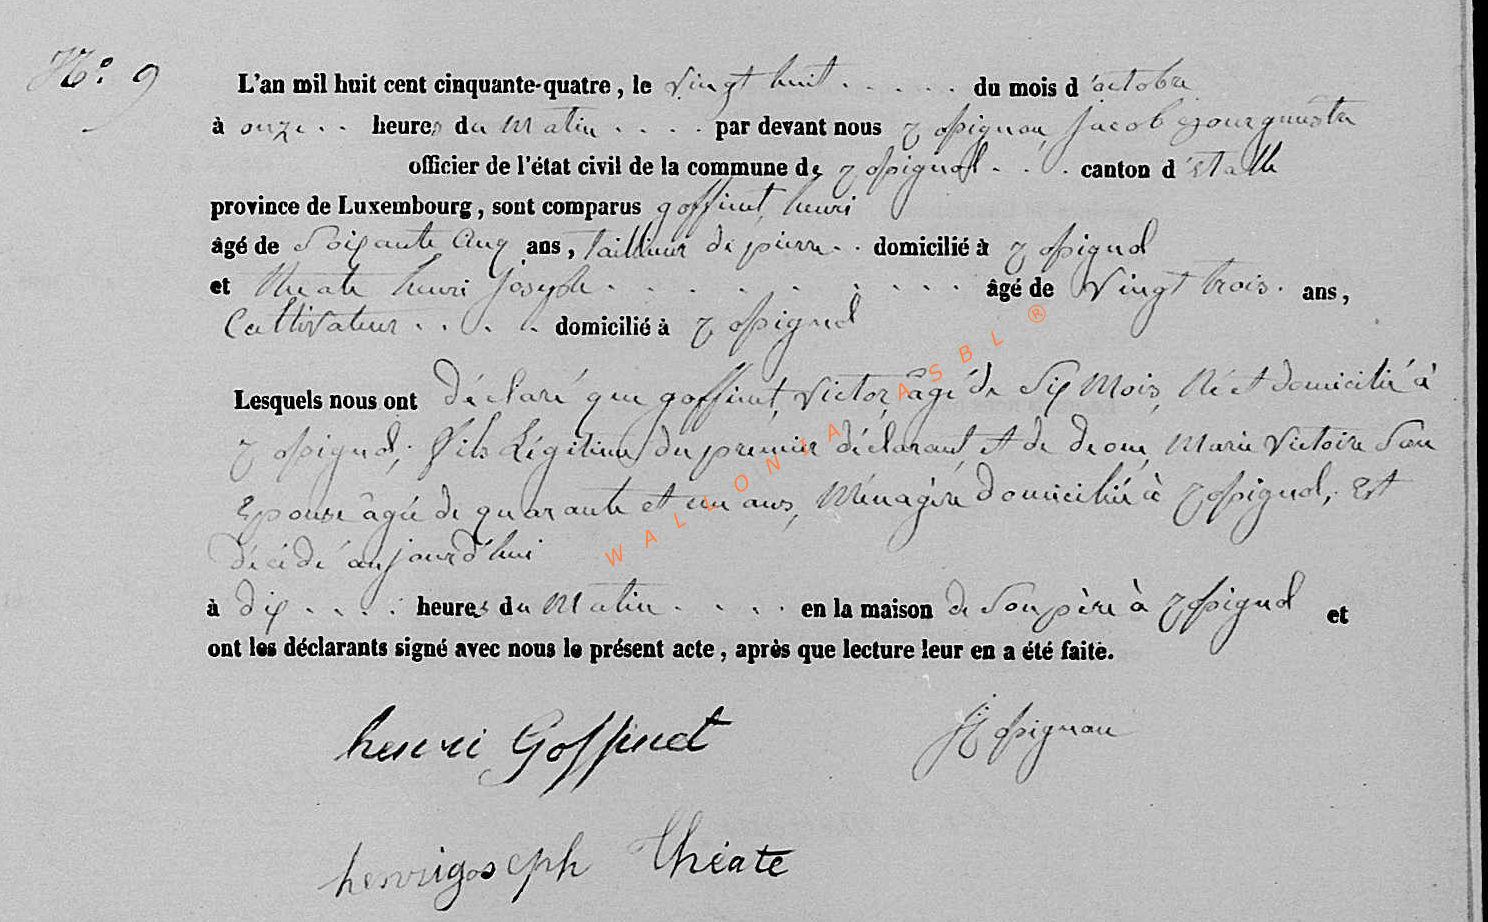 N°. 9
L'an mil huit cent cinquante-quatre, le vingt huit . . . . . du mois d'octobre
à onze . . heures du Matin . . . . par devant nous Jacob Bourgmestre
officier de l'état civil de la commune de . . . canton d'Etalle
province de Luxembourg, sont comparus goffinet, henri
âgé de Soixante Cinq ans, Tailleur de pierre . . domicilié à
et théate henri Joseph . . . . . . . . âgé de Vingt trois . ans,
Cultivateur . . . . . domicilié à
Lesquels nous ont déclaré que goffinet, Victor, âgé de Six Mois, Né et domicilié à
fils Légitime du premier déclarant, et de Marie Victoire Son
Epouse âgée de quarante et un ans, Ménagère domiciliée à Est
Décédé aujourd'hui
à dix . . . . heures du Matin . . . . en la maison de Son père à et
ont les déclarants signé avec nous le présent acte, après que lecture leur en a été faite.
henri Goffinet
henrigoseph théate
WALLONIA ASBL ®